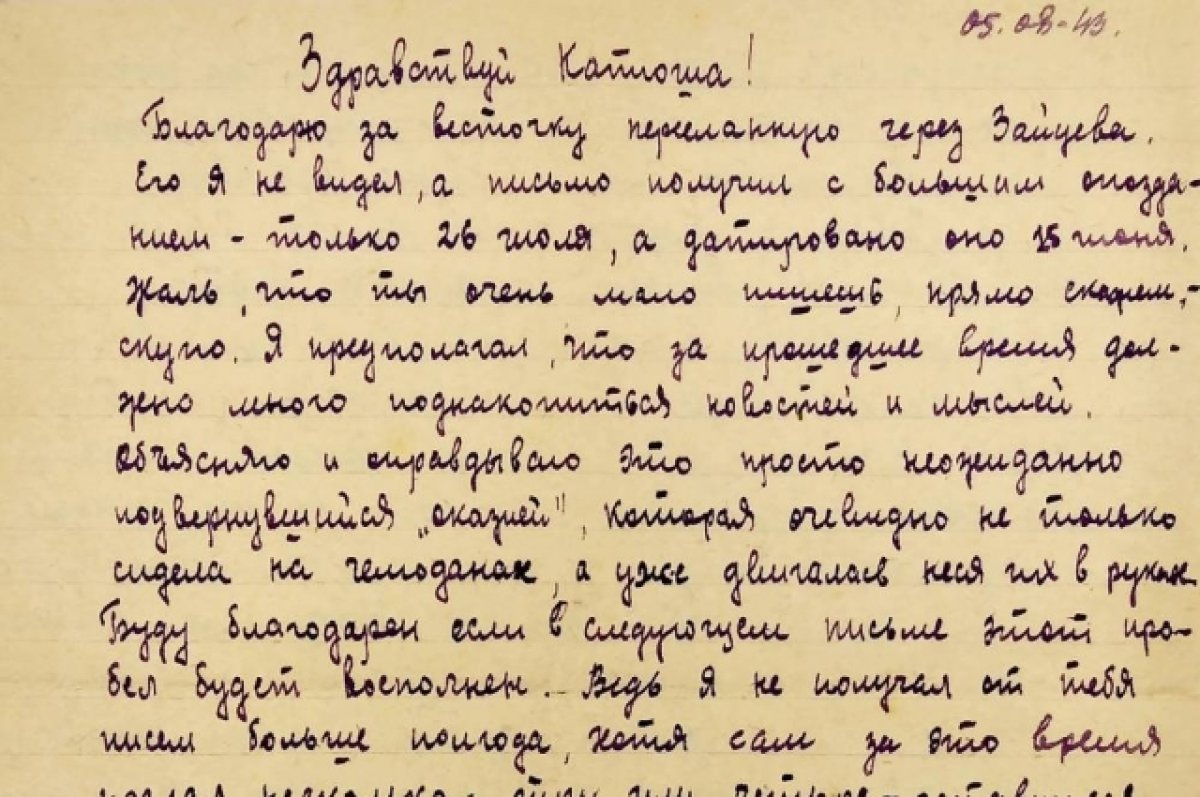 05.08-43.
Здравствуй Катюша!
Благодарю за весточку пересланную через Зайцева.
Его я не видел, а письмо получил с большим опозда-
нием - только 26 июля, а датировано оно 15 июня.
Жаль, что ты очень мало пишешь, прямо скажем, -
скупо. Я предполагал, что за прошедшее время дол-
жно много поднакопиться новостей и мыслей.
Объясняю и оправдываю это просто неожиданно
подвернувшийся „оказией", которая очевидно не только
сидела на чемоданах, а уже двигалась неся их в руках
Буду благодарен если в следующем письме этот про-
бел будет восполнен. - Ведь я не получал от тебя
писем больше полгода, хотя сам за это время
послал несколько -